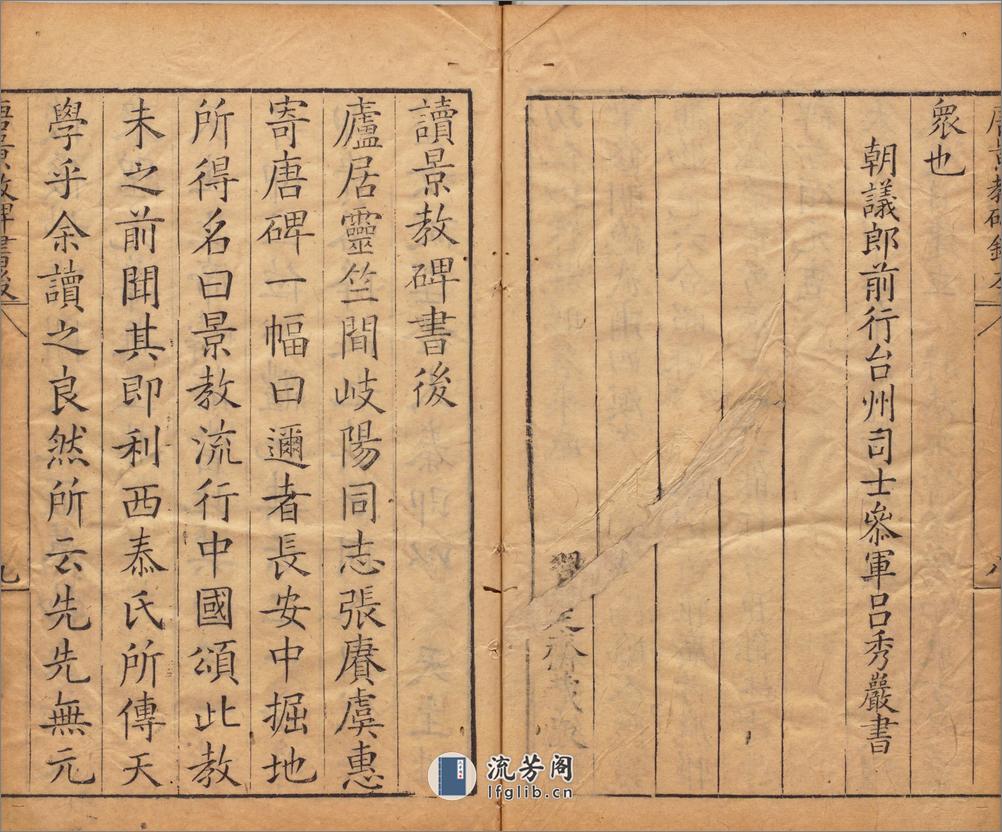 眾也
朝議郎前行台州司士參軍呂秀巖書
八
習是齋藏板
讀景教碑書後
廬居靈竺間岐陽同志張賡虞惠
寄唐碑一幅曰邇者長安中掘地
所得名曰景教流行中國頌此教
未之前聞其即利西泰氏所傳天
學乎余讀之良然所云先先無元
九
流芳阁
lfglib.cn